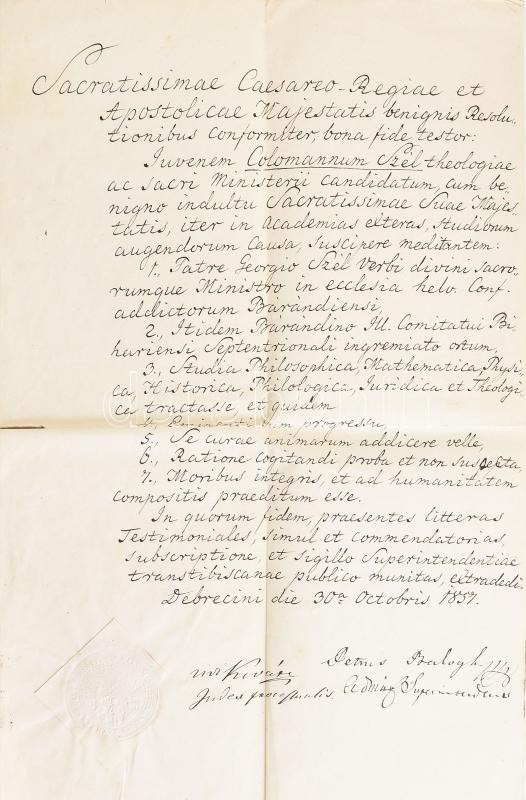 Sacratissimae Caesareo-Regiae et
Apostolicae Majestatis benignis Resolu-
tionibus conformiter, bona fide testor:
Iuvenem Colomannum Szél theologiae
ac sacri Ministerii candidatum, cum be-
nigno indultu Sacratissimae Suae Majes-
tatis, iter in Academias exteras, studiorum
augendorum causa, suscipere meditantem:
1., Patre Georgio Szél Verbi divini sacro-
rumque Ministro in ecclesia helv. Conf.
addictorum Bárándiensi,
2., Itidem Bárándino Ill. Comitatui Bi-
hariensi Septentrionali ingremiato ortum,
3., Studia Philosophica, Mathematica, Physi-
ca, Historica, Philologica, Iuridica et Theologi-
ca tractasse, et quidem
4., Eminenti cum progressu,
5., Se curae animarum addicere velle,
6., Ratione cogitandi proba et non suspecta,
7., Moribus integris, et ad humanitatem
compositis praeditum esse.
In quorum fidem, praesentes litteras
Testimoniales, simul et commendatorias,
subscriptione, et sigillo Superintendentiae
transtibiscanae publico munitas, extradedi.
Debrecini die 30a Octobris 1857.
Petrus Balogh
Superintendens